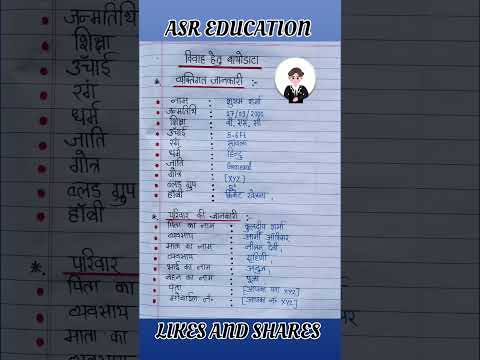 ASR EDUCATION
विवाह हेतु बायोडाटा
* व्यक्तिगत जानकारी :-
नाम : शुभम शर्मा
जन्मतिथि : 27/03/2000
शिक्षा : बी. एस. सी
उँचाई : 5.6 Ft
रंग : सांवला
धर्म : हिन्दू
जाति : General
गौत्र : [XYZ]
ब्लड ग्रुप :
हॉबी : क्रिकेट खेलना,
*. परिवार की जानकारी :-
पिता का नाम : कुलदीप शर्मा
व्यवसाय : आर्मी ऑफिसर
माता का नाम : नीलम देवी,
व्यवसाय : गृहिणी
भाई का नाम : अर्जुन,
बहन का नाम : पूजा
पता : [आपका पता XYZ]
मोबाईल नं. : [आपका नं. XYZ]
जन्मतिथि
शिक्षा
उँचाई
रंग
धर्म
जाति
गौत्र
ब्लड ग्रुप
हॉबी
*. परिवार
पिता का
व्यवसाय
माता का
LIKES AND SHARES